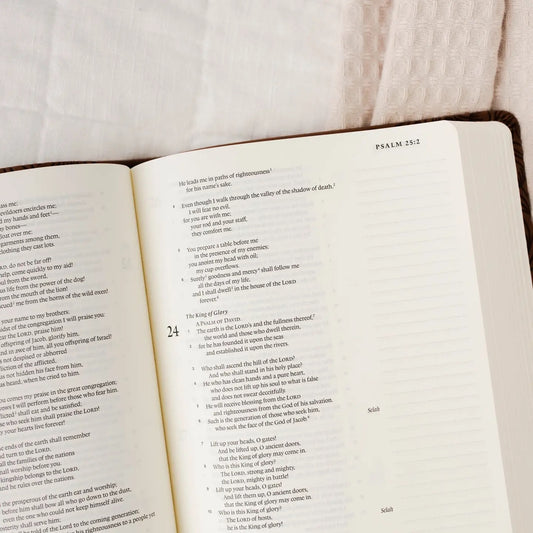 ass me;
evildoers encircles me;
d my hands and feet—
y bones—
loat over me;
garments among them,
clothing they cast lots.
LORD, do not be far off!
help, come quickly to my aid!
oul from the sword,
us life from the power of the dog!
from the mouth of the lion!
cued me from the horns of the wild oxen!
your name to my brothers;
midst of the congregation I will praise you:
ear the LORD, praise him!
offspring of Jacob, glorify him,
nd in awe of him, all you offspring of Israel!
as not despised or abhorred
fliction of the afflicted,
as not hidden his face from him,
as heard, when he cried to him.
omes my praise in the great congregation;
ows I will perform before those who fear him.
flicted shall eat and be satisfied;
who seek him shall praise the LORD!
y your hearts live forever!
he ends of the earth shall remember
nd turn to the LORD,
all the families of the nations
hall worship before you.
kingship belongs to the LORD,
and he rules over the nations.
the prosperous of the earth eat and worship;
before him shall bow all who go down to the dust,
even the one who could not keep himself alive.
osterity shall serve him;
be told of the Lord to the coming generation;
his righteousness to a people yet
PSALM 25:2
He leads me in paths of righteousness
for his name's sake.
4 Even though I walk through the valley of the shadow of death,
I will fear no evil,
for you are with me;
your rod and your staff,
they comfort me.
5 You prepare a table before me
in the presence of my enemies;
you anoint my head with oil;
my cup overflows.
6 Surely goodness and mercy shall follow me
all the days of my life,
and I shall dwell in the house of the LORD
forever.
The King of Glory
24 A PSALM OF DAVID.
1 The earth is the LORD's and the fullness thereof,
the world and those who dwell therein,
2 for he has founded it upon the seas
and established it upon the rivers.
3 Who shall ascend the hill of the LORD?
And who shall stand in his holy place?
4 He who has clean hands and a pure heart,
who does not lift up his soul to what is false
and does not swear deceitfully.
5 He will receive blessing from the LORD
and righteousness from the God of his salvation.
6 Such is the generation of those who seek him,
who seek the face of the God of Jacob. Selah
7 Lift up your heads, O gates!
And be lifted up, O ancient doors,
that the King of glory may come in.
8 Who is this King of glory?
The LORD, strong and mighty,
the LORD, mighty in battle!
9 Lift up your heads, O gates!
And lift them up, O ancient doors,
that the King of glory may come in.
10 Who is this King of glory?
The LORD of hosts,
he is the King of glory! Selah